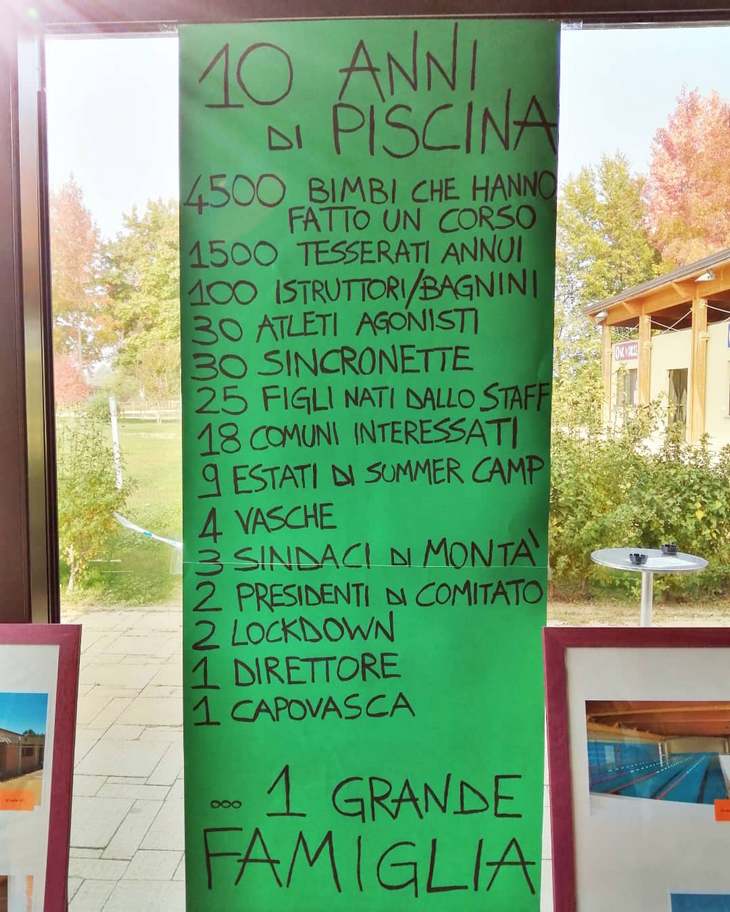 10 ANNI
DI PISCINA
4500 BIMBI CHE HANNO
FATTO UN CORSO
1500 TESSERATI ANNUI
100 ISTRUTTORI/BAGNINI
30 ATLETI AGONISTI
30 SINCRONETTE
25 FIGLI NATI DALLO STAFF
18 COMUNI INTERESSATI
9 ESTATI DI SUMMER CAMP
4 VASCHE
3 SINDACI DI MONTA'
2 PRESIDENTI DI COMITATO
2 LOCKDOWN
1 DIRETTORE
1 CAPOVASCA
... 1 GRANDE
FAMIGLIA